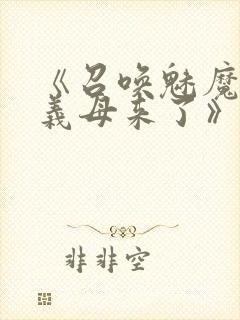 《召唤魅魔
義母来了》
非非空